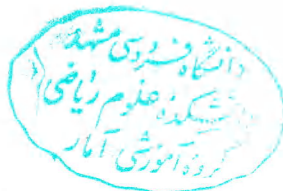 دانشگاه فردوسی مشهد
دانشکده علوم ریاضی
گروه آموزشی آمار